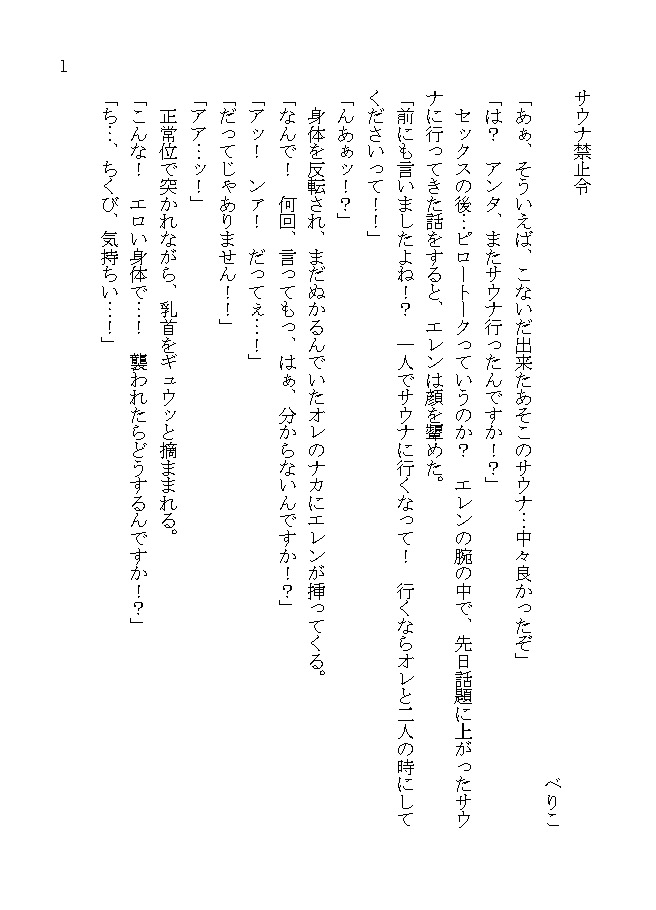 サウナ禁止令
べりこ
「あぁ、そういえば、こないだ出来たあそこのサウナ…中々良かったぞ」
「は？　アンタ、またサウナ行ったんですか！？」
　セックスの後…ピロートークっていうのか？　エレンの腕の中で、先日話題に上がったサウ
ナに行ってきた話をすると、エレンは顔を顰めた。
「前にも言いましたよね！？　一人でサウナに行くなって！　行くならオレと二人の時にして
くださいって！！」
「んあぁッ！？」
　身体を反転され、まだぬかるんでいたオレのナカにエレンが挿ってくる。
「なんで！　何回、言ってもっ、はぁ、分からないんですか！？」
「アッ！　ンァ！　だってぇ…！」
「だってじゃありません！！」
「アア…ッ！」
　正常位で突かれながら、乳首をギュウッと摘ままれる。
「こんな！　エロい身体で…！　襲われたらどうするんですか！？」
「ち…、ちくび、気持ちい…！」
1